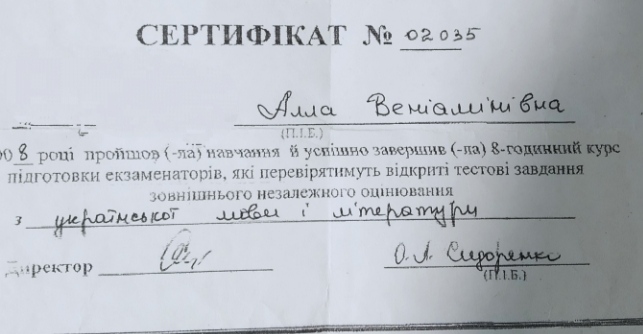 СЕРТИФІКАТ № 02035
Алла Веніамінівна
(П.І.Б.)
8 році пройшов (-ла) навчання й успішно завершив (-ла) 8-годинний курс
підготовки екзаменаторів, які перевірятимуть відкриті тестові завдання
зовнішнього незалежного оцінювання
з української мови і літератури
Директор О. Л. Сидоренко
(П.І.Б.)